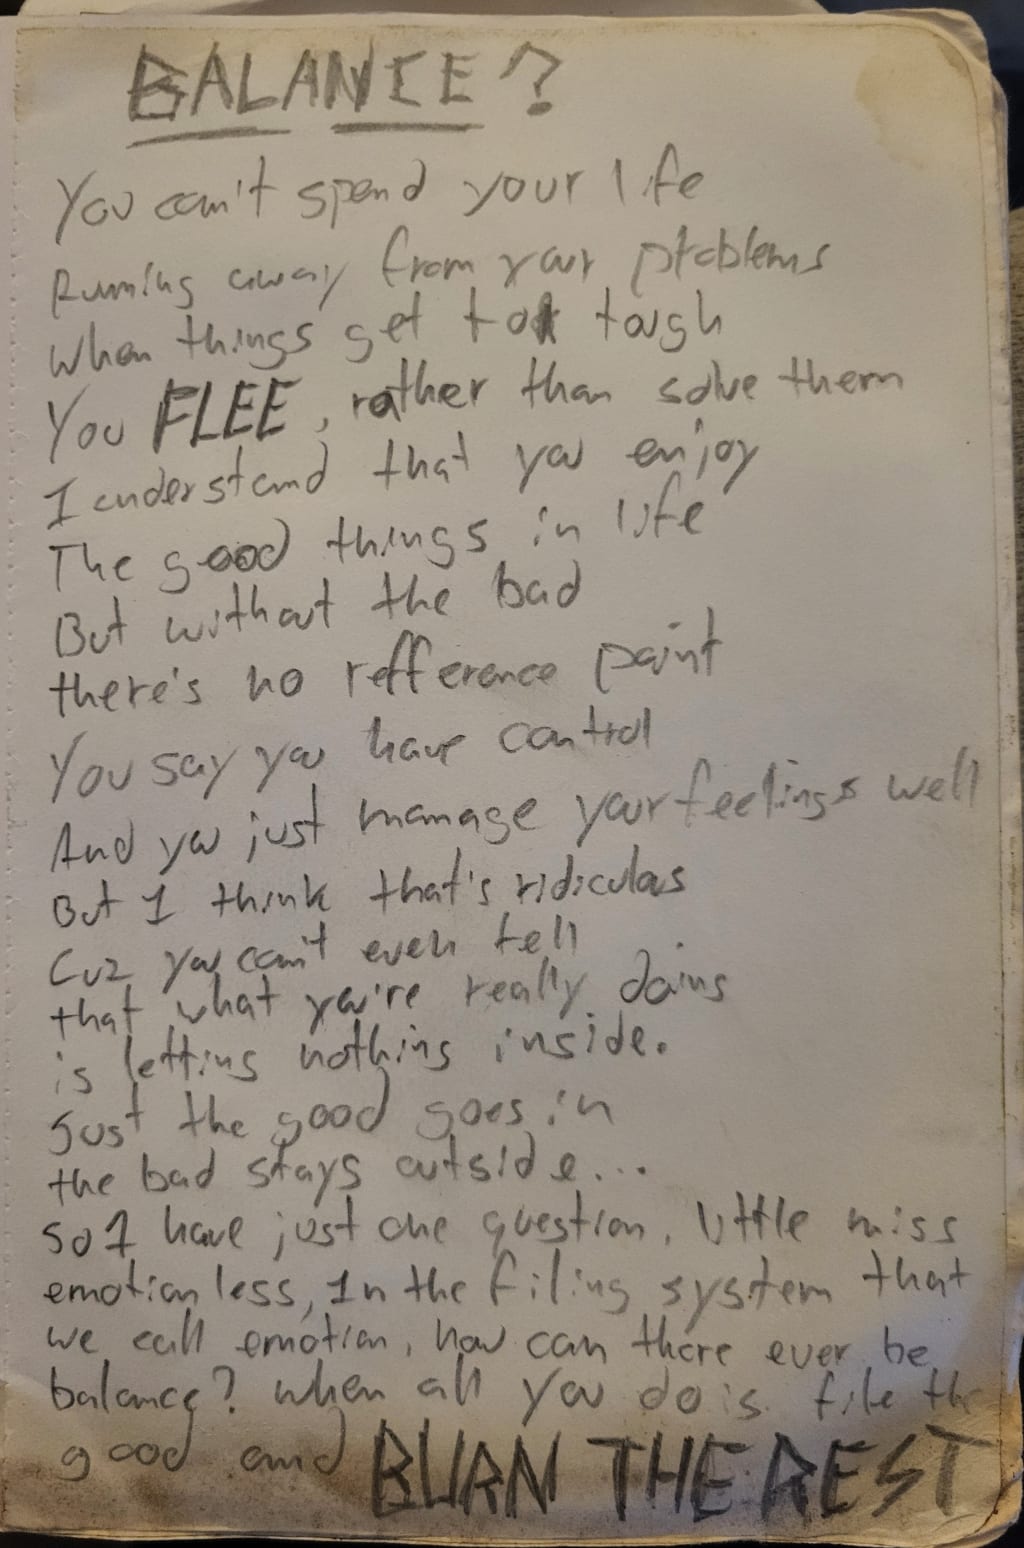 BALANCE?
You can't spend your life
Running away from your problems
When things get too tough
You FLEE, rather than solve them
I understand that you enjoy
The good things in life
But without the bad
there's no refference point
You say you have control
And you just manage your feelings well
But I think that's ridiculous
Cuz you can't even tell
that what you're really doing
is letting nothing inside.
Just the good goes in
the bad stays outside...
So I have just one question, little miss
emotionless, In the filing system that
we call emotion, how can there ever be
balance? When all you do is file the
good and BURN THE REST